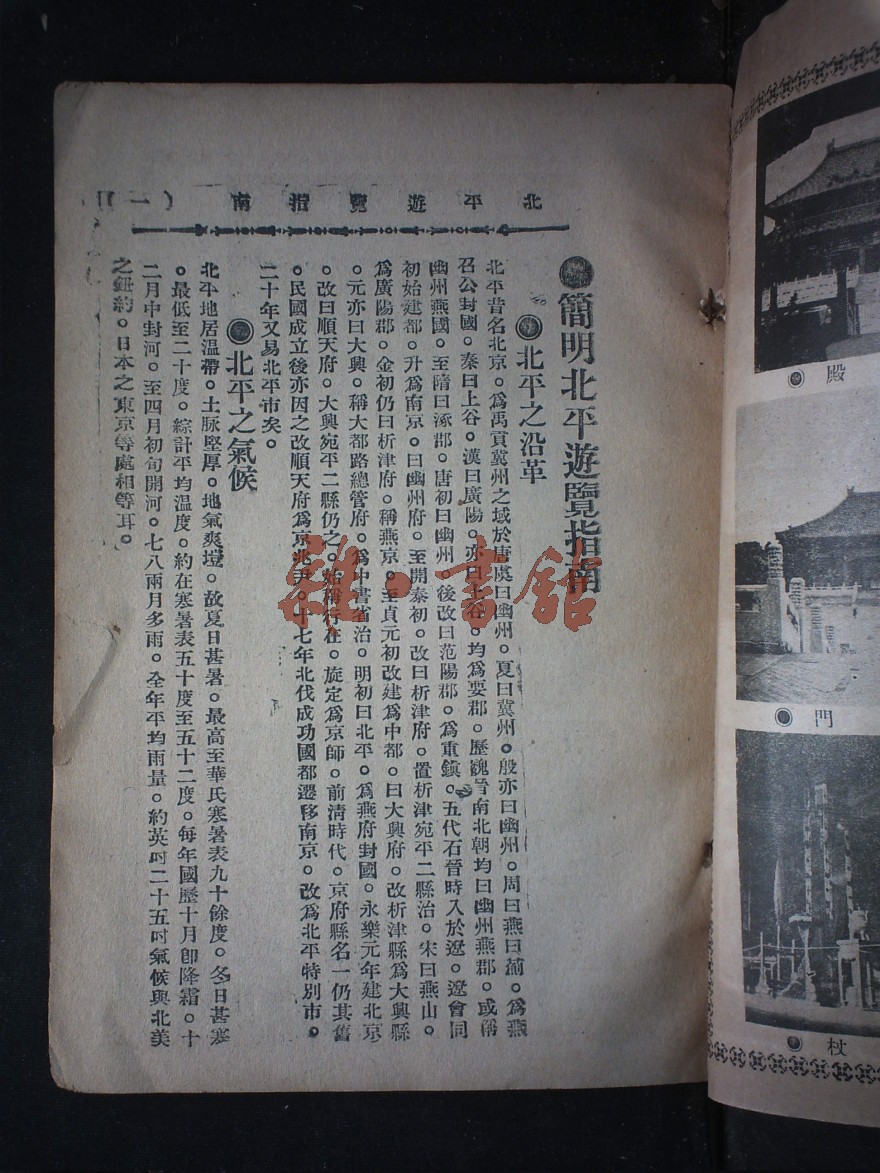 北平遊覽指南 （一）
簡明北平遊覽指南
北平之沿革
北平昔名北京。為禹貢冀州之域於唐虞曰幽州。夏曰冀州。殷亦曰幽州。周曰燕曰薊。為燕
召公封國。秦曰上谷。漢曰廣陽。亦曰上谷。均為要郡。歷魏晉南北朝均曰幽州燕郡。或稱
幽州燕國。至隋曰涿郡。唐初曰幽州。後改曰范陽郡。為重鎮。五代石晉時入於遼。遼會同
初始建都。升為南京。曰幽州府。至開泰初。改曰析津府。置析津宛平二縣治。宋曰燕山。
為廣陽郡。金初仍曰析津府。稱燕京。至貞元初改建為中都。曰大興府。改析津縣為大興縣
。元亦曰大興。稱大都路總管府。為中書省治。明初曰北平。為燕府封國。永樂元年建北京
。改曰順天府。大興宛平二縣仍之。始稱行在。旋定為京師。前清時代。京府縣名一仍其舊
。民國成立後亦因之改順天府為京兆尹。十七年北伐成功國都遷移南京。改為北平特別市。
二十年又易北平市矣。
北平之氣候
北平地居溫帶。土脉堅厚。地氣爽塏。故夏日甚暑。最高至華氏寒暑表九十餘度。冬日甚寒
。最低至二十度。綜計平均溫度。約在寒暑表五十度至五十二度。每年國歷十月卽降霜。十
二月中封河。至四月初旬開河。七八兩月多雨。全年平均雨量。約英吋二十五吋氣候與北美
之鈕約。日本之東京等處相等耳。
雜·書館
殿
門
杖